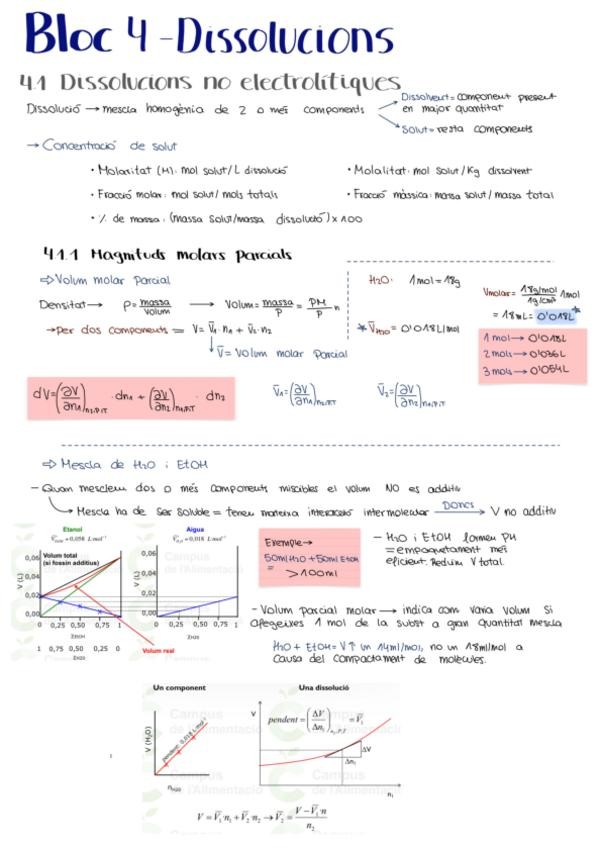 Bloc 4 - Dissolucions
4.1 Dissolucions no electrolítiques
Dissolució → mescla homogènia de 2 o més components
Dissolvent = component present
en major quantitat
Solut = resta components
→ Concentració de solut
• Molaritat (M): mol solut/L dissolució
• Molalitat: mol solut/Kg dissolvent
• Fracció molar: mol solut/mols totals
• Fracció màssica: massa solut/massa total
• % de massa: (massa solut/massa dissolució) x 100
4.1.1 Magnituds molars parcials
⇨ Volum molar parcial
Densitat → ρ = massa/volum → Volum = massa/ρ = PM/ρ n
→ per dos components = V = V̅₁ · n₁ + V̅₂ · n₂
↓ V̅ = volum molar parcial
H₂O: 1mol = 18g
Vmolar = 18g/mol / 1g/cm³ 1mol
= 18mL = 0'018L*
* V̅H₂O = 0'018L/mol
1 mol → 0'018L
2 mols → 0'036L
3 mols → 0'054L
dV = (∂V/∂n₁)n₂,P,T · dn₁ + (∂V/∂n₂)n₁,P,T · dn₂
V̅₁ = (∂V/∂n₁)n₂,P,T
V̅₂ = (∂V/∂n₂)n₁,P,T
⇨ Mescla de H₂O i EtOH
- Quan mesclem dos o més components miscibles el volum NO es additiu
Mescla ha de ser soluble = tenen mateixa interacció intermolecular Doncs → V no additiu
Etanol
Aigua
Volum total
(si fossin additius)
V (L)
0,06
0,04
0,02
0,00
0 0,25 0,50 0,75 1
χEtOH
1 0,75 0,50 0,25 0
χH2O
Volum real
V (L)
0,06
0,04
0,02
0,00
0 0,25 0,50 0,75 1
χH2O
Campus
de l'Alimentació
Exemple →
50ml H₂O + 50ml EtOH
=
> 100ml
- H₂O i EtOH formen PH
= empaquetament més
eficient. Reduïm V total.
- Volum parcial molar → indica com varia volum si
afegeixes 1 mol de la subst a gran quantitat mescla
H₂O + EtOH = V ↑ un 14ml/mol, no un 18ml/mol a
causa del compactament de molècules.
Un component
Una dissolució
V (H₂O)
pendent: 0,018 L·mol⁻¹
nH2O
V
pendent = (ΔV/Δn₁)n₂,P,T = V̅₁
ΔV
Δn₁
n₁
Campus
de l'Alimentació
V = V̅₁·n₁ + V̅₂·n₂ → V̅₂ = V − V̅₁·n / n₂